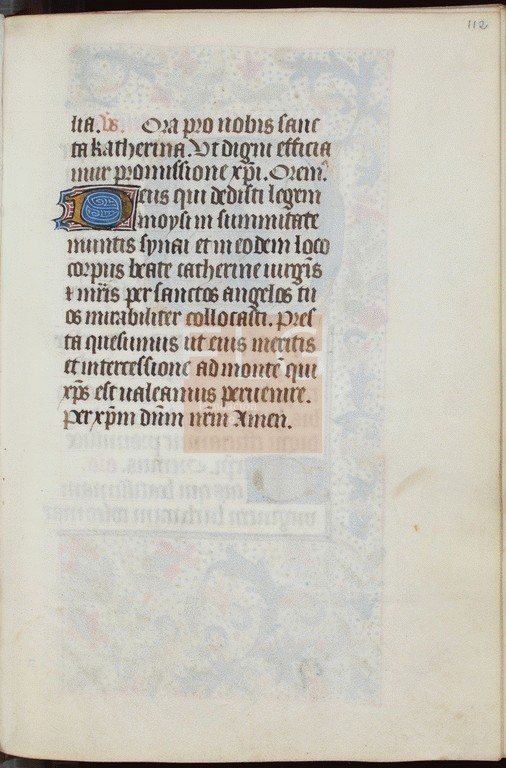 112
lia. vs. Ora pro nobis sanc
ta katherina. Vt digni efficia
mur promissione xpi. Orem9.
Deus qui dedisti legem
moysi in summitate
muntis synai et in eodem loco
corpus beate catherine uirgis
⁊ mris per sanctos angelos tu
os mirabiliter collocasti. Pres
ta quesumus ut eius meritis
et intercessione ad monte qui
xps est ualeamus peruenire.
Per xpm dnm nrm Amen.